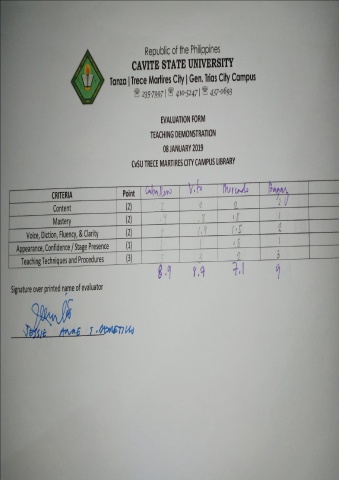 Republic of the Philippines
CAVITE STATE UNIVERSITY
Tanza | Trece Martires City | Gen. Trias City Campus
☏ 235-7997 | ☏ 410-5247 | ☏ 437-0693
EVALUATION FORM
TEACHING DEMONSTRATION
08 JANUARY 2019
CvSU TRECE MARTIRES CITY CAMPUS LIBRARY
CRITERIA Point Vito Mercado
Content (2) 2 2 2
Mastery (2) 1.8 1.8 1
Voice, Diction, Fluency, & Clarity (2) 1.9 1.5 2
Appearance, Confidence / Stage Presence (1) 1
Teaching Techniques and Procedures (3) 3
8.9 8.7 7.1 9
Signature over printed name of evaluator
JESSIE ANNE T.